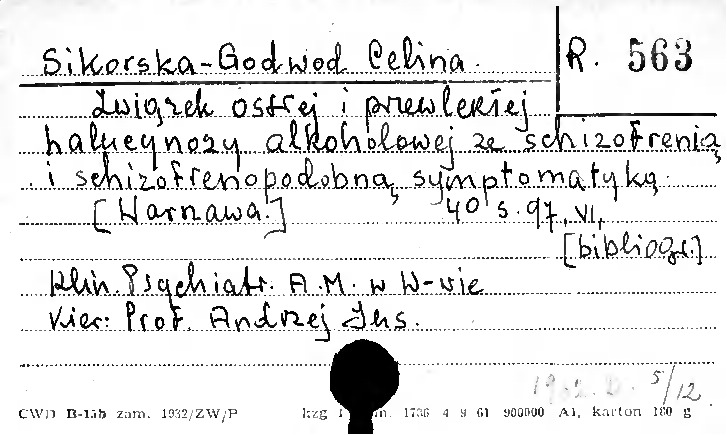 Sikorska-Godwod Celina.
R. 563
Związek ostrej i przewlekłej
halucynozy alkoholowej ze schizofrenią
i schizofrenopodobną symptomatyką.
[Warszawa.] 40 s. 97, VI,
[bibliogr.]
Klin. Psychiatr. A.M. w W-wie
Kier: Prof. Andrzej Jus.
5/12
CWD B-15b zam. 1932/ZW/P kzg 1736 4 9 61 900000 A1, karton 180 g